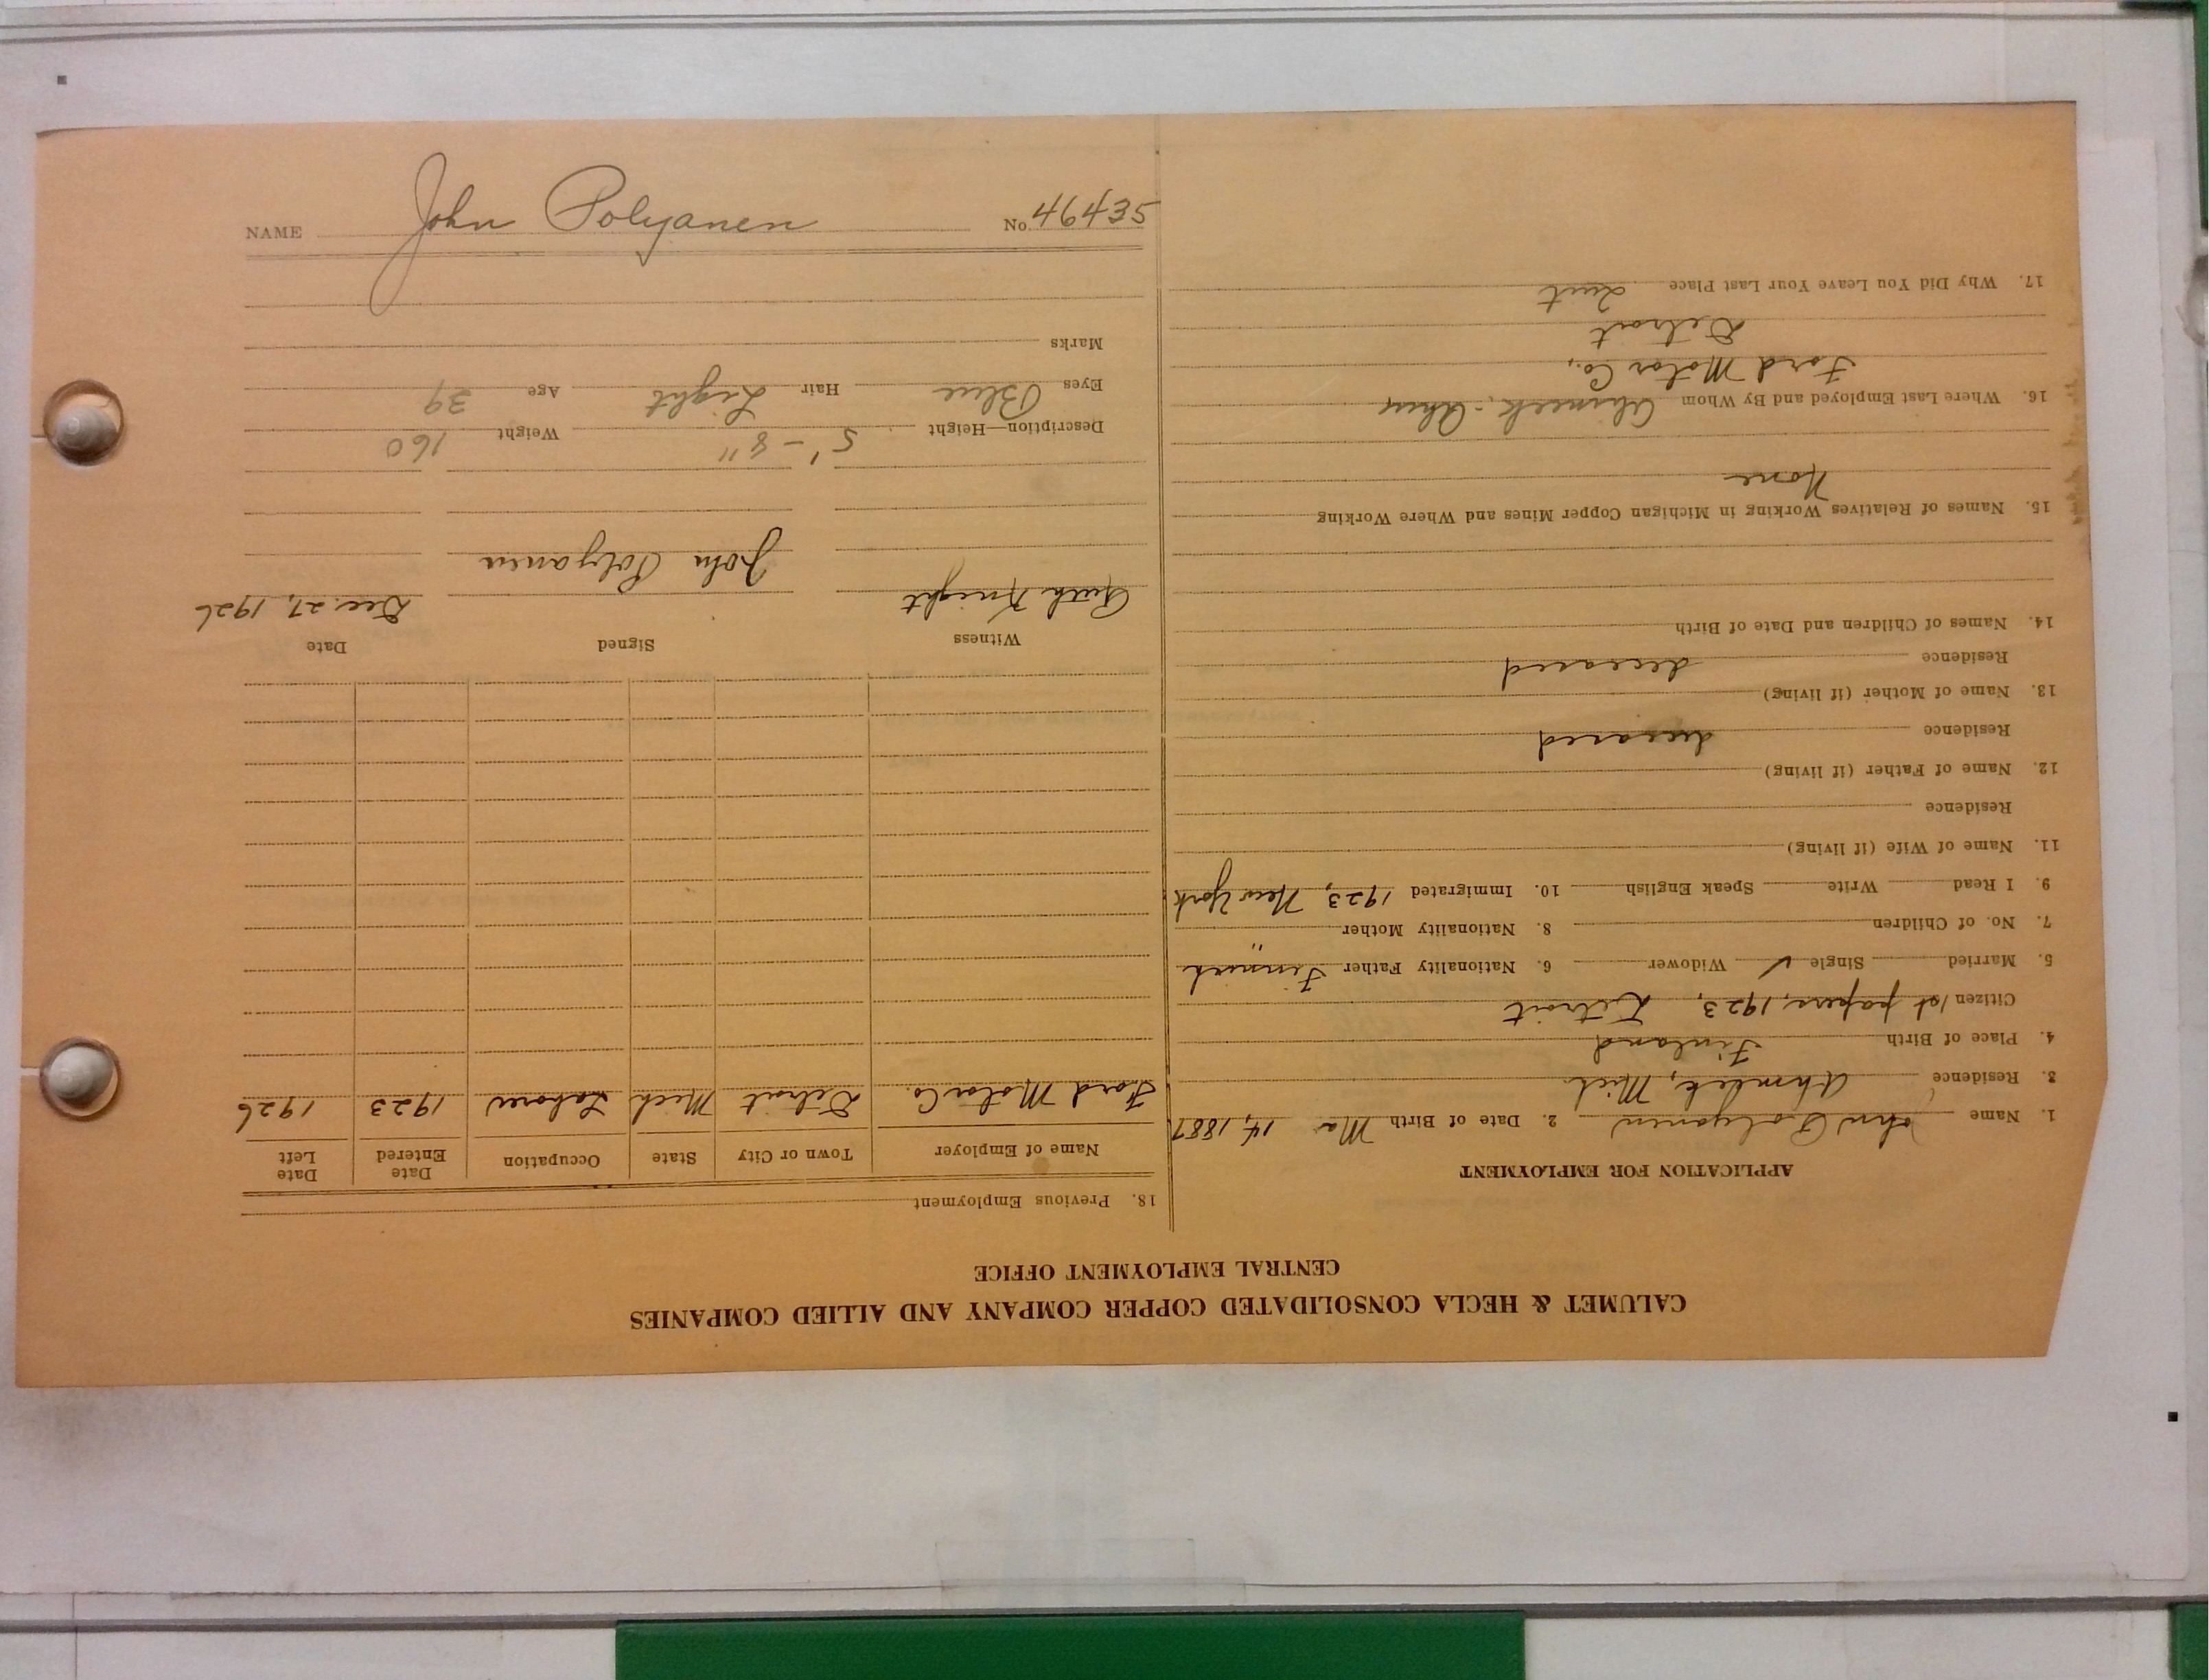 NAME John Polyanen No. 46435
CALUMET & HECLA CONSOLIDATED COPPER COMPANY AND ALLIED COMPANIES
CENTRAL EMPLOYMENT OFFICE
APPLICATION FOR EMPLOYMENT
1. Name John Polyanen 2. Date of Birth Ma 14, 1887
3. Residence Ahmeek, Mich.
4. Place of Birth Finland
Citizen 1st papers, 1923, Detroit
5. Married Single ✓ Widower 6. Nationality Father Finnish
7. No. of Children 8. Nationality Mother "
9. I Read Write Speak English 10. Immigrated 1923, New York
11. Name of Wife (if living)
Residence
12. Name of Father (if living)
Residence deceased
13. Name of Mother (if living)
Residence deceased
14. Names of Children and Date of Birth
15. Names of Relatives Working in Michigan Copper Mines and Where Working
None
16. Where Last Employed and By Whom
Ford Motor Co.,
Detroit
17. Why Did You Leave Your Last Place Quit
18. Previous Employment
Name of Employer Town or City State Occupation Date Entered Date Left
Ford Motor Co. Detroit Mich Laborer 1923 1926
Witness Signed Date
Ruth Knight John Polyanen Dec. 27, 1926
Description—Height 5' - 8" Weight 160
Eyes Blue Hair Light Age 39
Marks